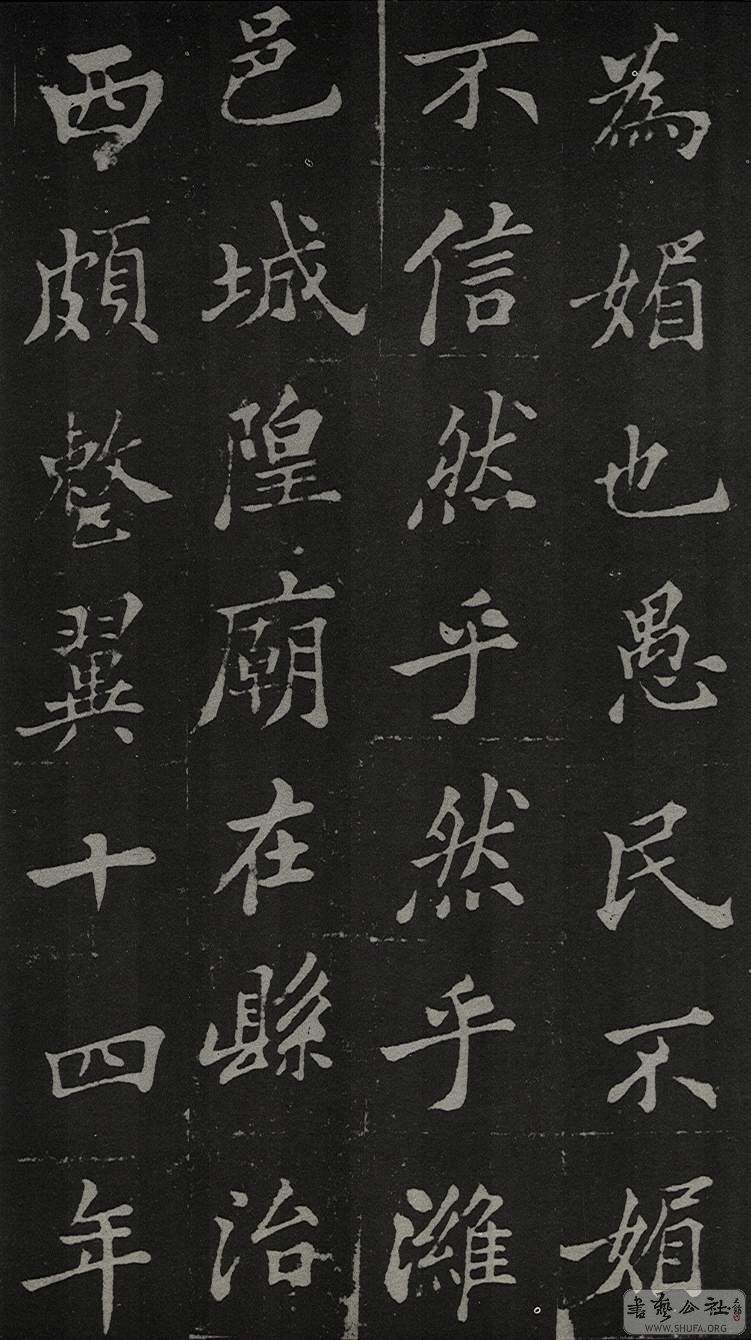 為媚也愚民不媚
不信然乎然乎濰
邑城隍廟在縣治
西頗整翼十四年
書藝公社
WWW.SHUFA.ORG